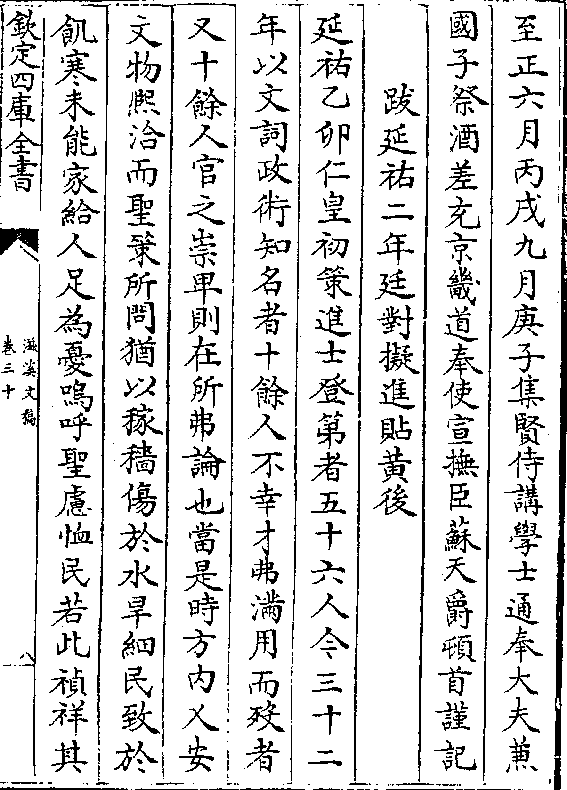 至正六月丙戌九月庚子集賢侍講學士通奉大夫兼
國子祭酒差充京畿道奉使宣撫臣蘇天爵頓首謹記
跋延祐二年廷對擬進貼黄後
延祐乙卯仁皇初策進士登第者五十六人今三十二
年以文詞政術知名者十餘人不幸才弗滿用而歿者
又十餘人官之崇卑則在所弗論也當是時方内乂安
文物熈洽而聖䇿所問猶以稼穡傷於水旱細民致於
飢寒未能家給人足為憂嗚呼聖慮恤民若此禎祥其
欽定四庫全書
滋溪文稿
卷三十
八